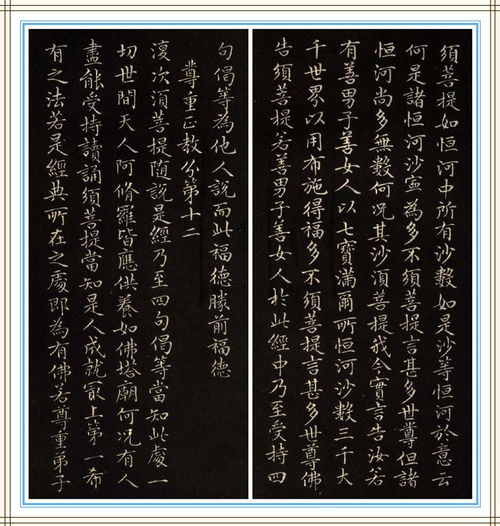 須菩提如恒河中所有沙數如是沙等恒河於意云
何是諸恒河沙寧為多不須菩提言甚多世尊但諸
恒河尚多無數何況其沙須菩提我今實言告汝若
有善男子善女人以七寶滿爾所恒河沙數三千大
千世界以用布施得福多不須菩提言甚多世尊佛
告須菩提若善男子善女人於此經中乃至受持四
句偈等為他人說而此福德勝前福德
尊重正教分第十二
復次須菩提隨說是經乃至四句偈等當知此處一
切世間天人阿脩羅皆應供養如佛塔廟何況有人
盡能受持讀誦須菩提當知是人成就最上第一希
有之法若是經典所在之處即為有佛若尊重弟子